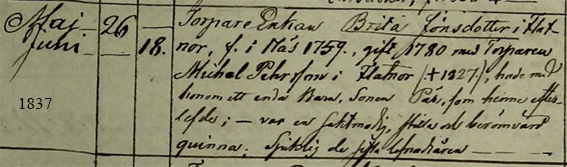 Maj 26 Torpare Enkan Brita Jönsdotter i Flat-
Juni 18. nor, f. i Näs 1759., gift 1780 med Torparen
Michel Pehrsson i Flatnor (+1827), hade med
1837 honom ett enda Barn, Sonen Pär, som henne efter-
lefde; – var en saktmodig, stilla och berömvärd
quinna; Sjuklig de sista lefnadsåren